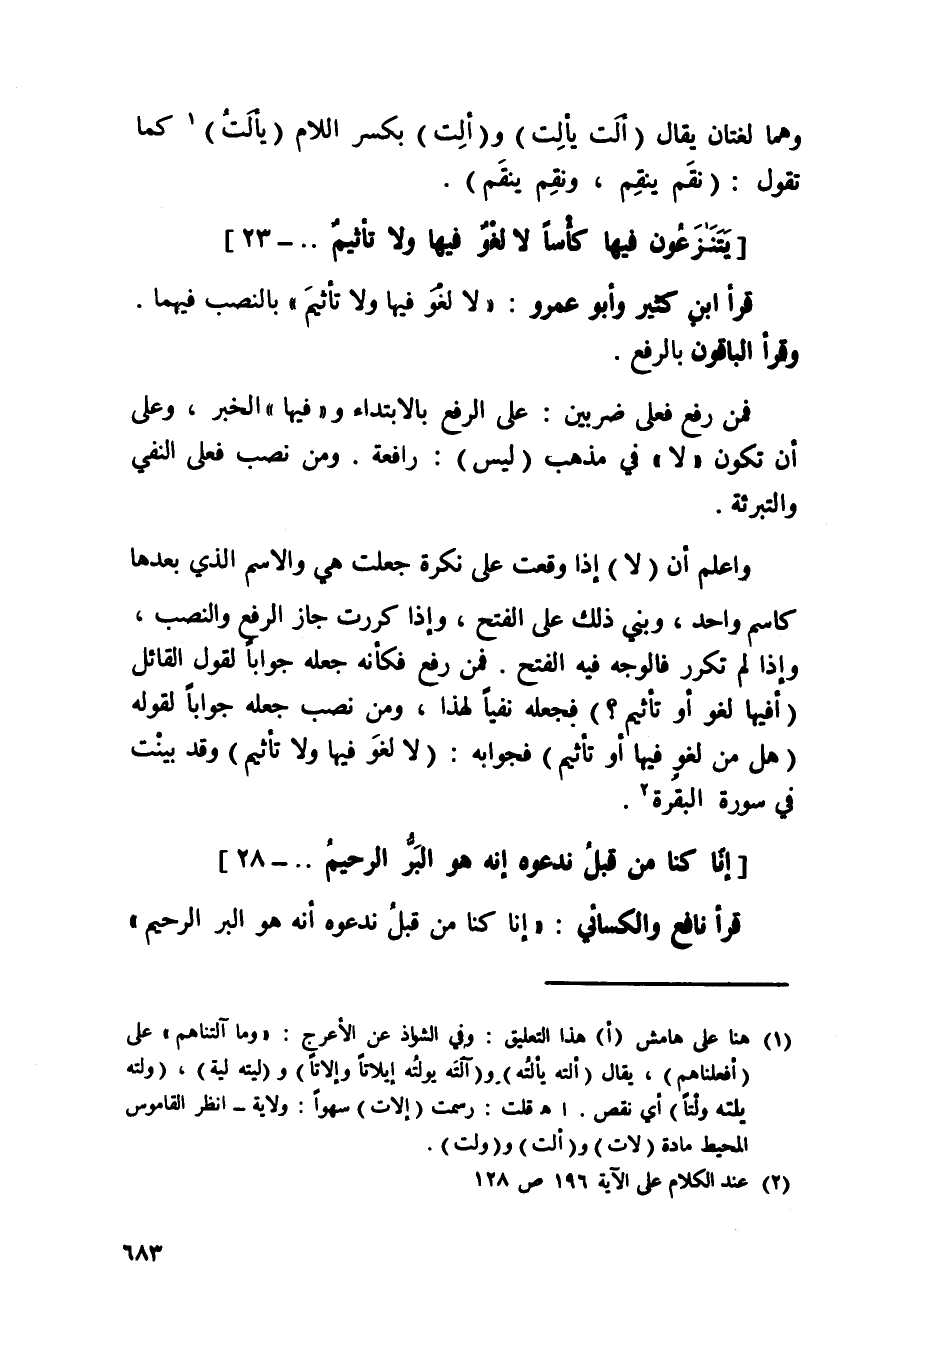 وهما لغتان يقال (ألَت يألِت) و(ألِت) بكسر اللام (يألَتُ)١ كما
تقول : (نقَم ينقِم ، ونقِم ينقَم) .
[يَتَنَـٰزَعُون فيها كأْساً لا لغْوٌ فيها ولا تأثيمٌ .. – ٢٣]
قرأ ابن كثير وأبو عمرو : «لا لغْوَ فيها ولا تأثيمَ» بالنصب فيهما .
وقرأ الباقون بالرفع .
فمن رفع فعلى ضربين : على الرفع بالابتداء و«فيها» الخبر ، وعلى
أن تكون «لا» في مذهب (ليس) : رافعة . ومن نصب فعلى النفي
والتبرئة .
واعلم أن (لا) إذا وقعت على نكرة جعلت هي والاسم الذي بعدها
كاسم واحد ، وبني ذلك على الفتح ، وإذا كررت جاز الرفع والنصب ،
وإذا لم تكرر فالوجه فيه الفتح . فمن رفع فكأنه جعله جواباً لقول القائل
(أفيها لغو أو تأثيم ؟) فجعله نفياً لهذا ، ومن نصب جعله جواباً لقوله
(هل من لغوٍ فيها أو تأثيم) فجوابه : (لا لغوَ فيها ولا تأثيم) وقد بينْت
في سورة البقرة٢ .
[إنّا كنا من قبلُ ندعوه إنه هو البَرُّ الرحيمُ .. – ٢٨]
قرأ نافع والكسائي : «إنا كنا من قبلُ ندعوه أنه هو البر الرحيم»
(١) هنا على هامش (أ) هذا التعليق : وفي الشواذ عن الأعرج : «وما آلتناهم» على
(أفعلناهم) ، يقال (ألته يألتُه) و(آلَتَه يولتُه إيلاتاً وإلاتاً) و (ليته لية) ، (ولته
يلته ولْتاً) أي نقص . ا ه قلت : رسمت (إلات) سهواً : ولاية – انظر القاموس
المحيط مادة (لات) و(ألت) و(ولت) .
(٢) عند الكلام على الآية ١٩٦ ص ١٢٨
٦٨٣